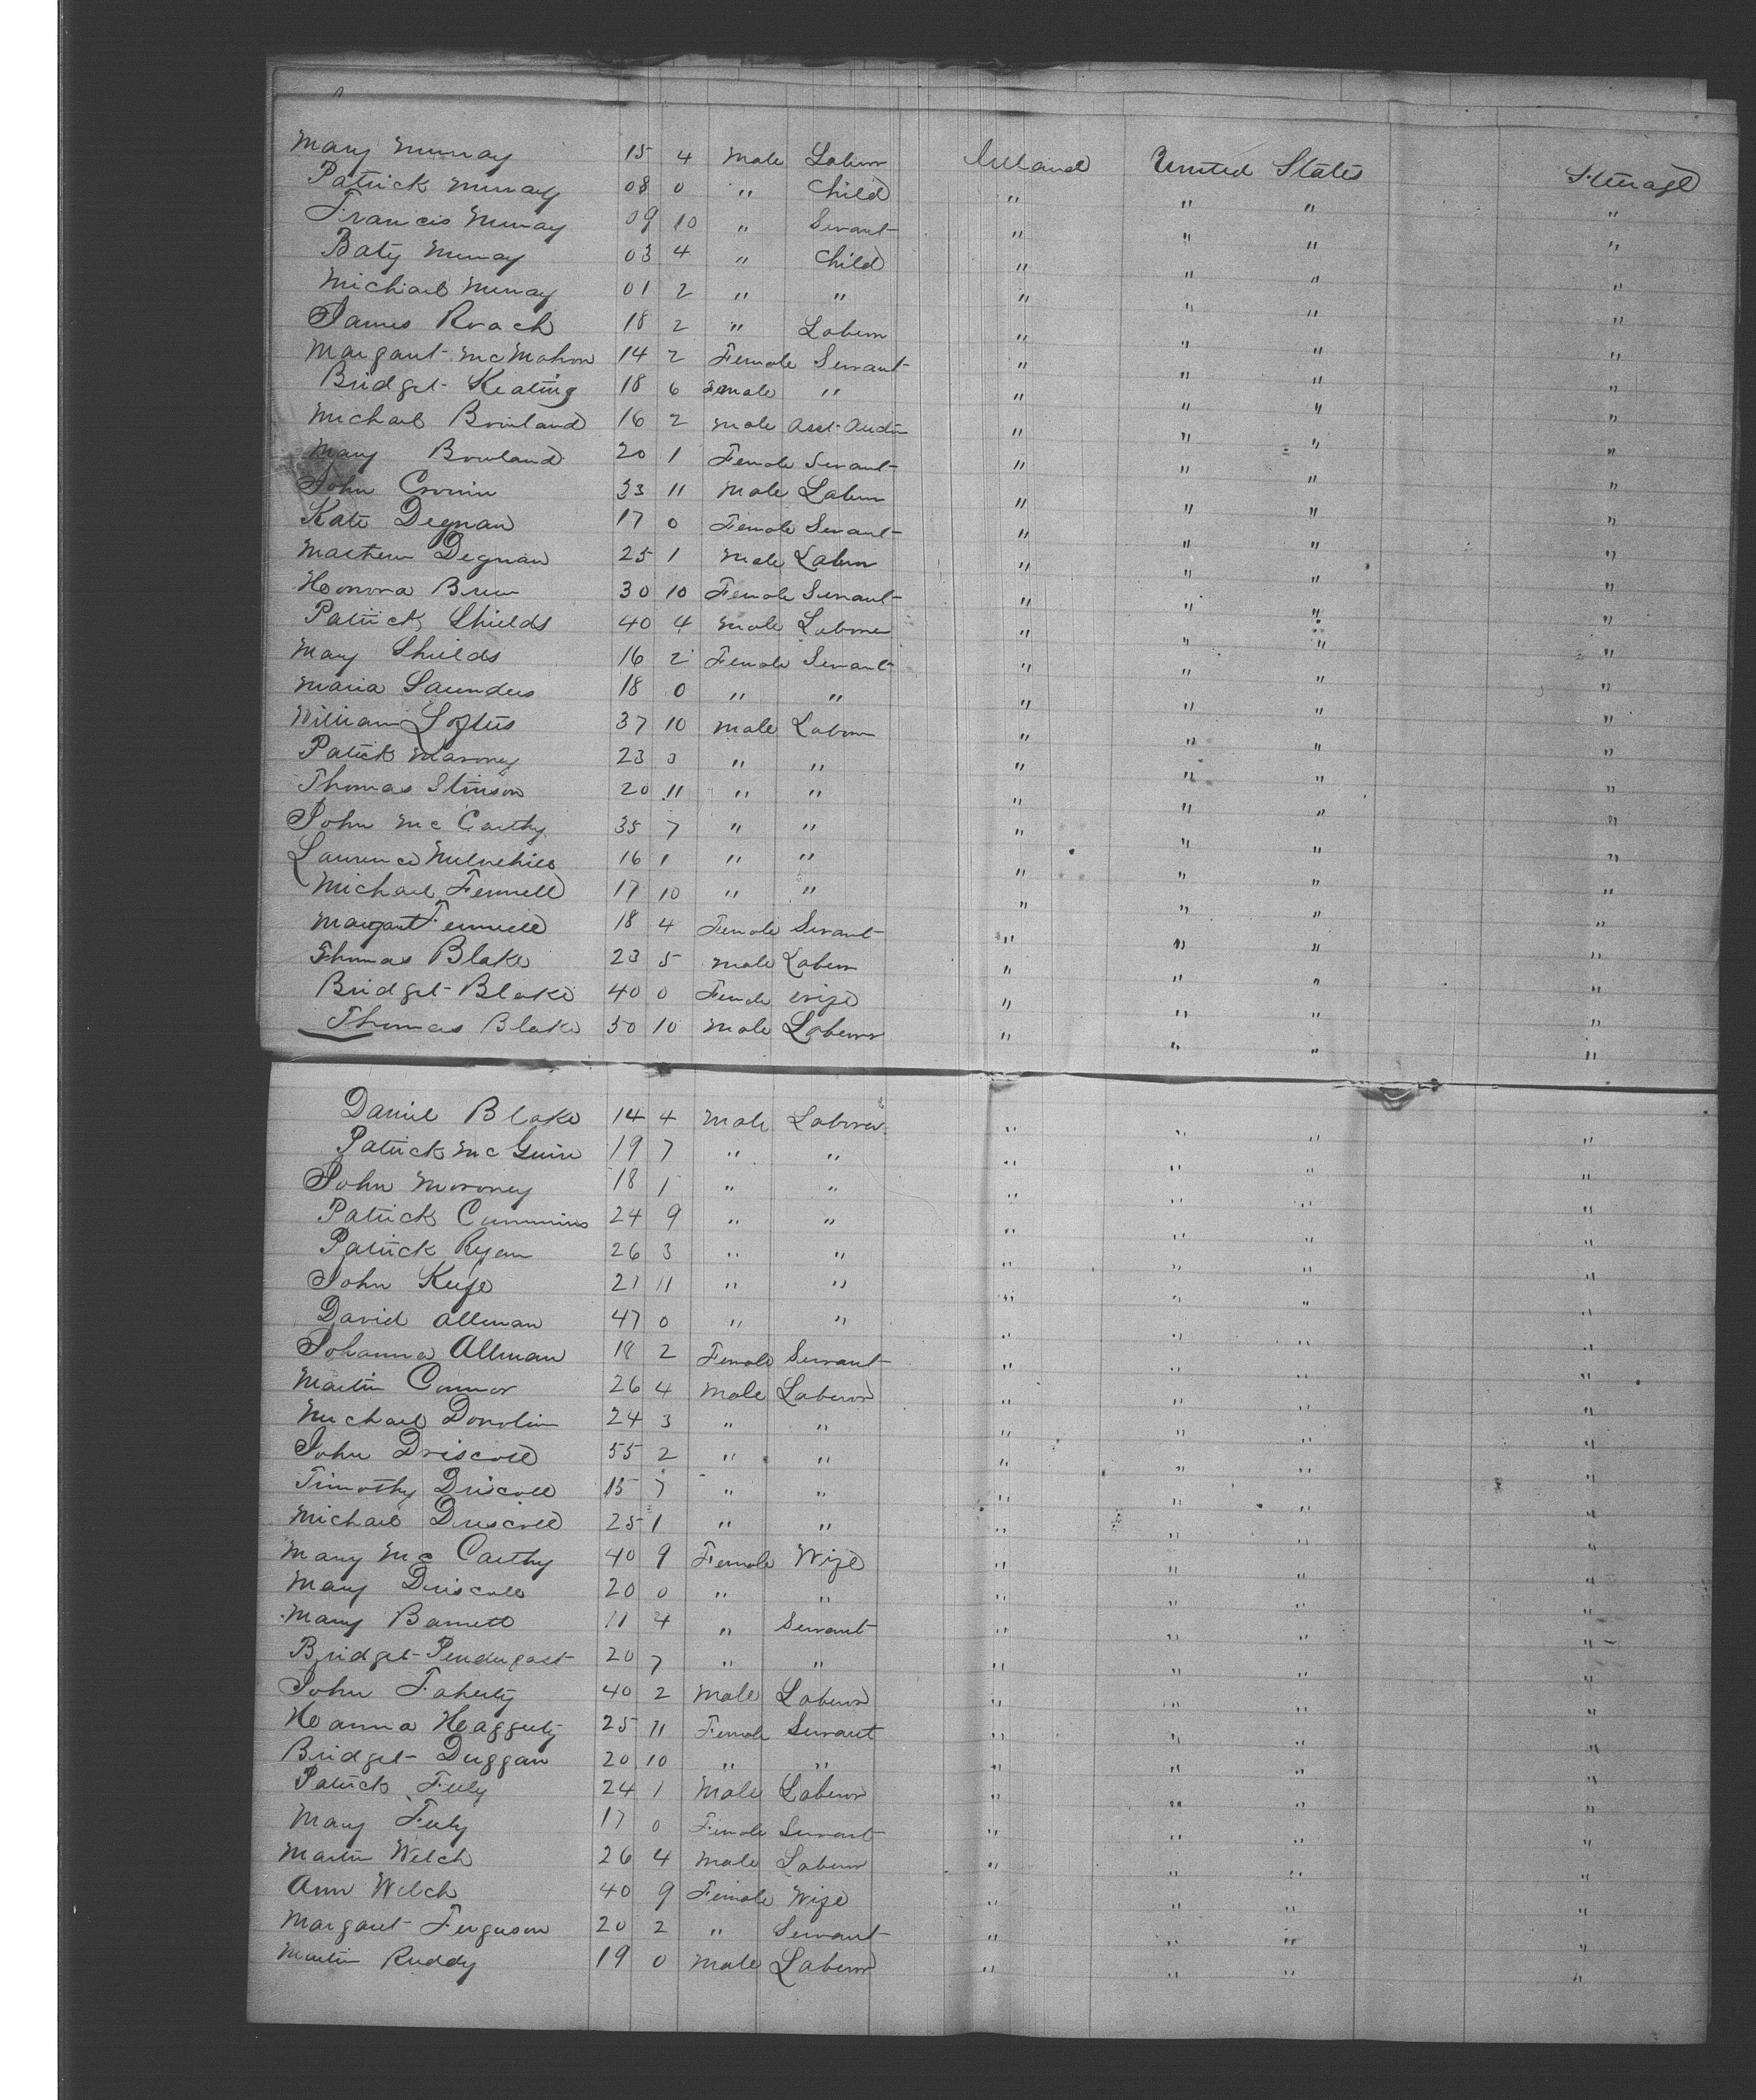 Mary Murray 15 4 Male Laborer Ireland United States Steerage
Patrick Murray 08 0 " Child " " " "
Francis Murray 09 10 " Servant " " " "
Baty Murray 03 4 " Child " " " "
Michael Murray 01 2 " " " " " "
James Roach 18 2 " Laborer " " " "
Margaret McMahon 14 2 Female Servant " " " "
Bridget Keating 18 6 Female " " " " "
Michael Bowland 16 2 Male " " " "
Mary Bowland 20 1 Female Servant " " " "
John Cronin 33 11 Male Laborer " " " "
Kate Degnan 17 0 Female Servant " " " "
Mathew Degnan 25 1 Male Laborer " " " "
Honora Brew 30 10 Female Servant " " " "
Patrick Shields 40 4 Male Laborer " " " "
Mary Shields 16 2 Female Servant " " " "
Maria Saunders 18 0 " " " " " "
William Loftus 37 10 Male Laborer " " " "
Patrick Maroney 23 3 " " " " " "
Thomas Stinson 20 11 " " " " " "
John McCarthy 35 7 " " " " " "
Laurence 16 1 " " " " " "
Michael Fennell 17 10 " " " " " "
Margaret Fennell 18 4 Female Servant " " " "
Thomas Blake 23 5 Male Laborer " " " "
Bridget Blake 40 0 Female Wife " " " "
Thomas Blake 50 10 Male Laborer " " " "
Daniel Blake 14 4 Male Laborer " " " "
Patrick McGuire 19 7 " " " " " "
John Moroney 18 1 " " " " " "
Patrick Cummins 24 9 " " " " " "
Patrick Ryan 26 3 " " " " " "
John Keefe 21 11 " " " " " "
David Allman 47 0 " " " " " "
Johanna Allman 18 2 Female Servant " " " "
Martin Connor 26 4 Male Laborer " " " "
Michael Donolin 24 3 " " " " " "
John Driscoll 55 2 " " " " " "
Timothy Driscoll 15 7 " " " " " "
Michael Driscoll 25 1 " " " " " "
Mary McCarthy 40 9 Female Wife " " " "
Mary Driscoll 20 0 " " " " " "
Mary Barrett 11 4 " Servant " " " "
Bridget Pendergast 20 7 " " " " " "
John Faherty 40 2 Male Laborer " " " "
Hoanna Haggerty 25 11 Female Servant " " " "
Bridget Duggan 20 10 " " " " " "
Patrick Feely 24 1 Male Laborer " " " "
Mary Feely 17 0 Female Servant " " " "
Martin Welch 26 4 Male Laborer " " " "
Ann Welch 40 9 Female Wife " " " "
Margaret Ferguson 20 2 " Servant " " " "
Martin Ruddy 19 0 Male Laborer " " " "